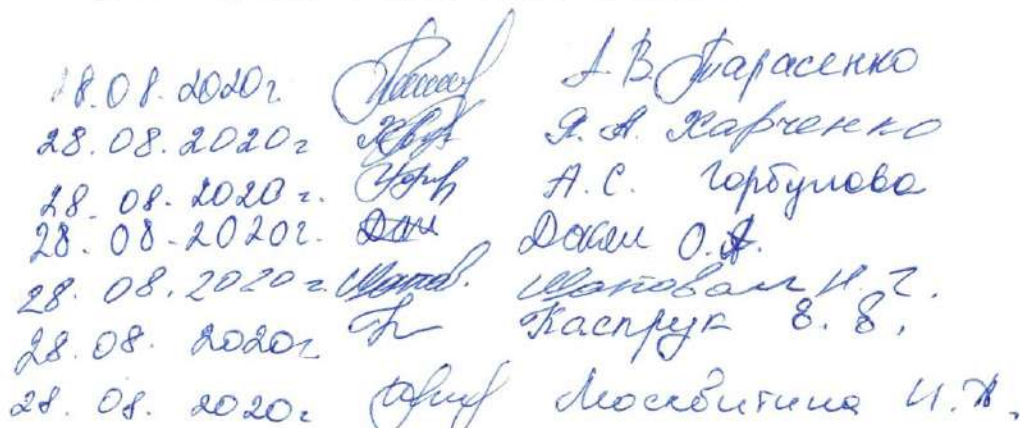 18.08.2020г. А.В. Тарасенко
28.08.2020г Я.А. Харченко
28.08.2020г. А.С. Горбунова
28.08.2020г. О.А.
28.08.2020г. Шаповал Н.Г.
28.08.2020г Каспрук Е.Е.
28.08.2020г Москвитина И.